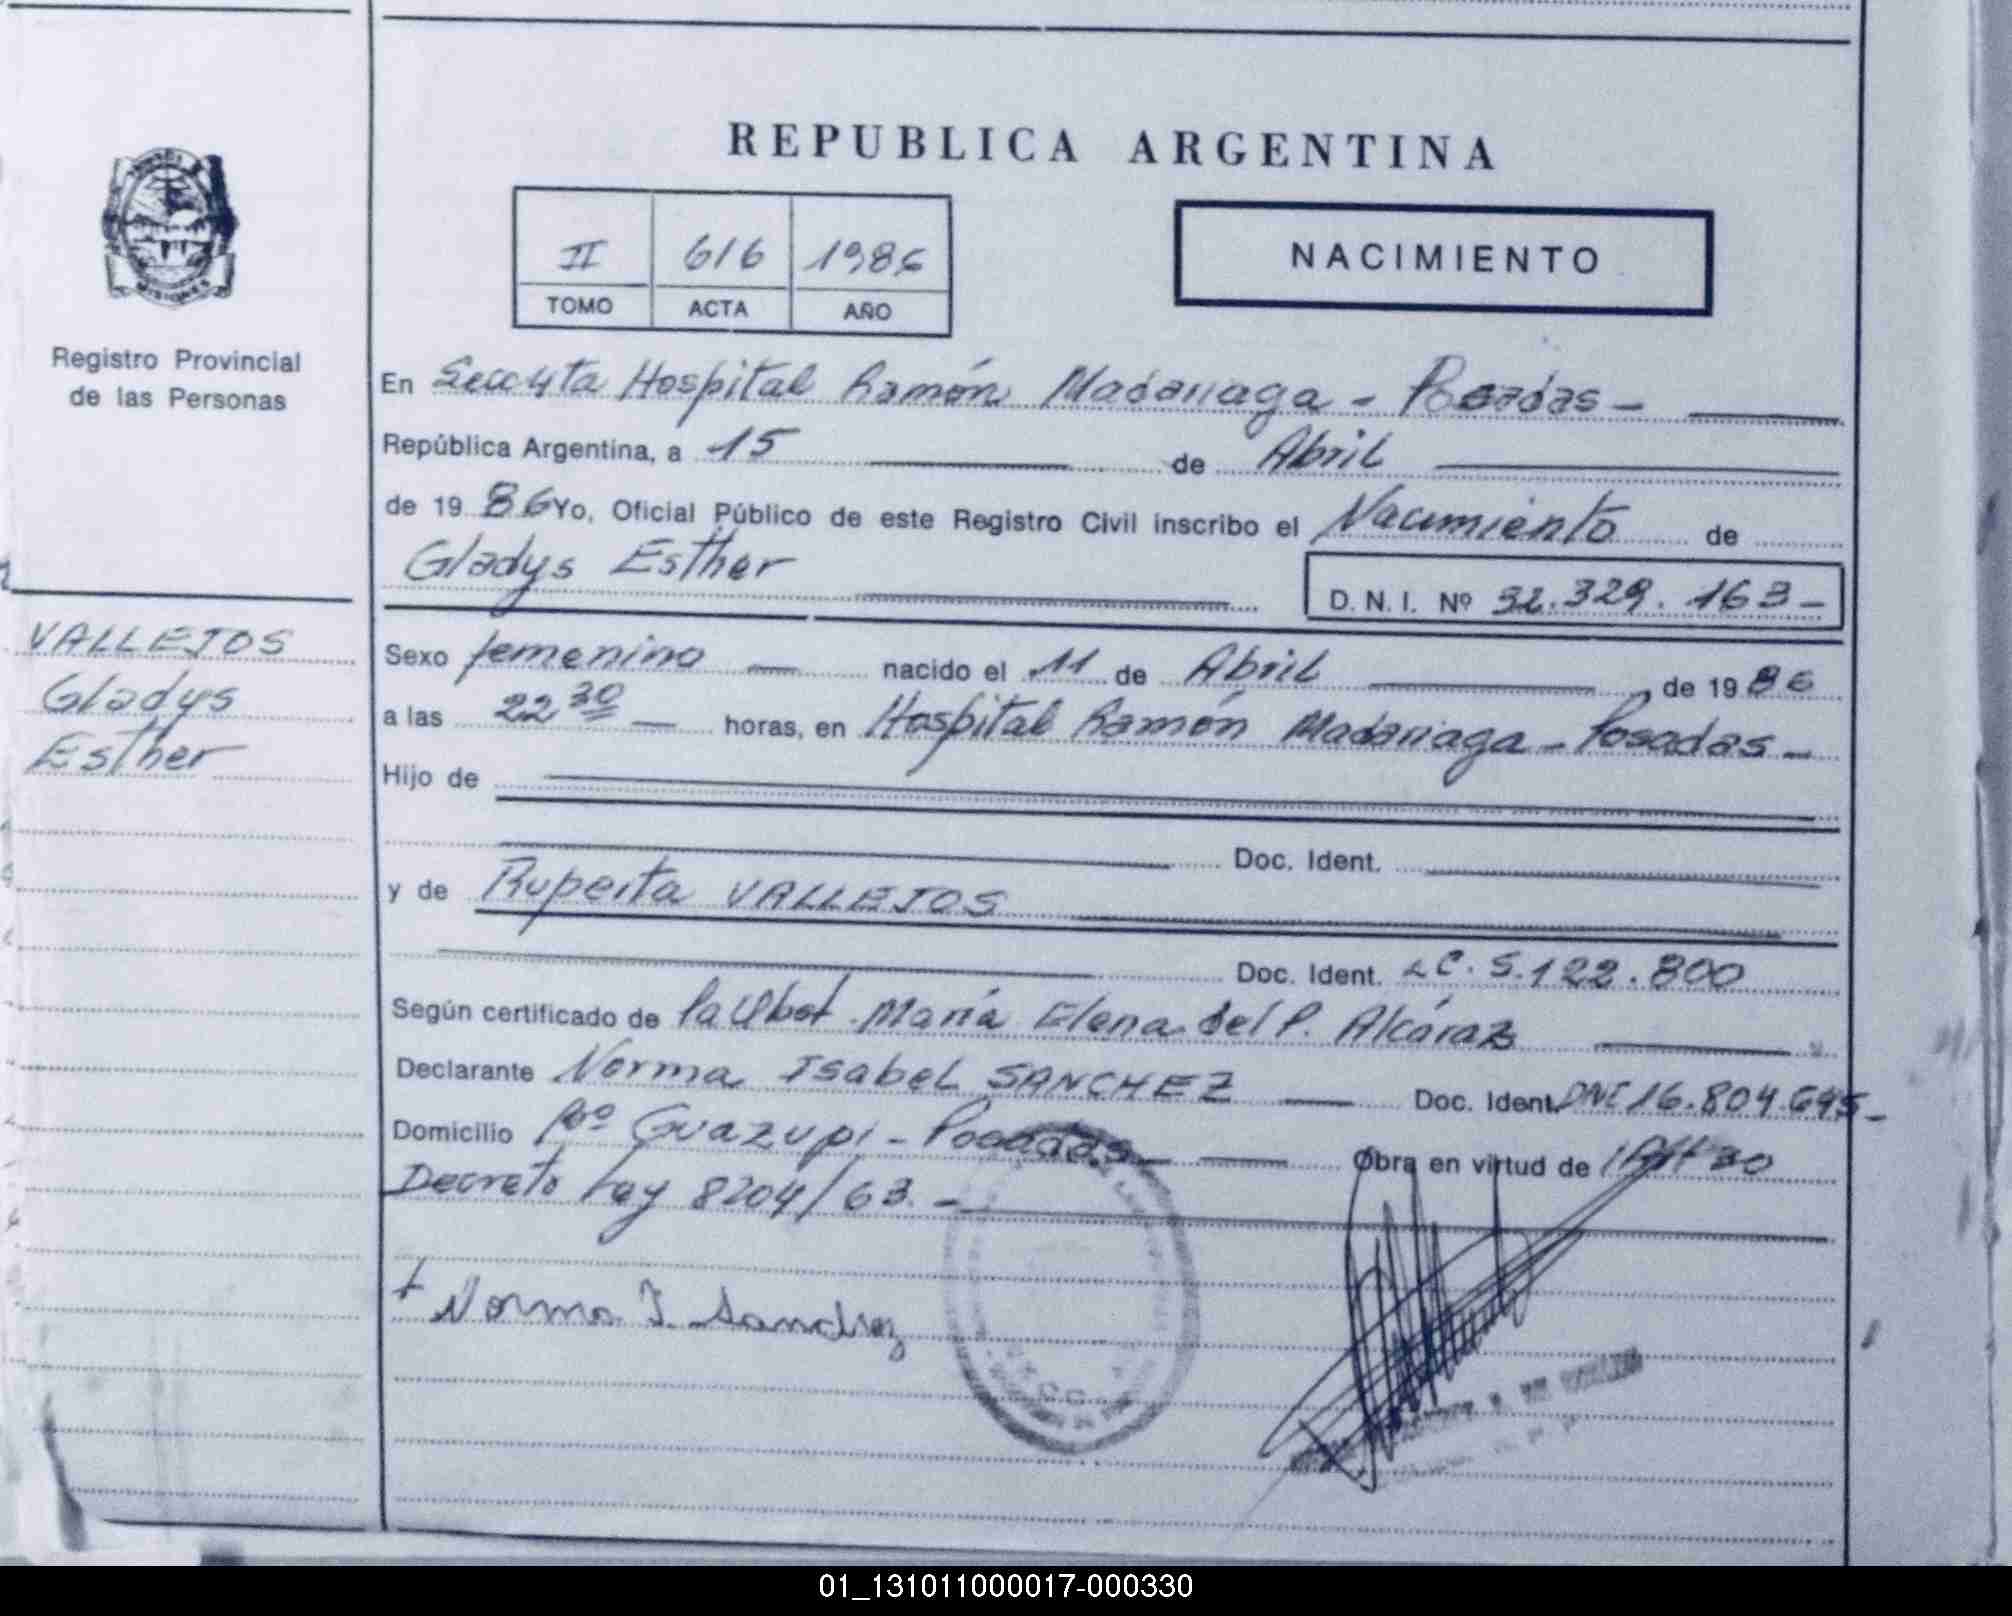 REPUBLICA ARGENTINA
II 616 1986
TOMO ACTA AÑO
NACIMIENTO
MISIONES
Registro Provincial
de las Personas
En Hospital Ramón Madariaga - Posadas -
República Argentina, a 15 de Abril
de 19 86 Yo, Oficial Público de este Registro Civil inscribo el Nacimiento de
Gladys Esther
D. N. I. Nº 32.329.163-
VALLEJOS
Gladys
Esther
Sexo femenino nacido el 11 de Abril de 19 86
a las 22 30 horas, en Hospital Ramón Madariaga - Posadas -
Hijo de
Doc. Ident.
y de Ruperta VALLEJOS
Doc. Ident. LC. 5.122.800
Según certificado de la Obst. María Elena del P. Alcáraz
Declarante Norma Isabel SANCHEZ Doc. Ident. DNI 16.804.645-
Domicilio Bº Guazupi - Posadas - Obra en virtud de
Decreto Ley 8204/63.-
+ Norma I. Sanchez
01_131011000017-000330